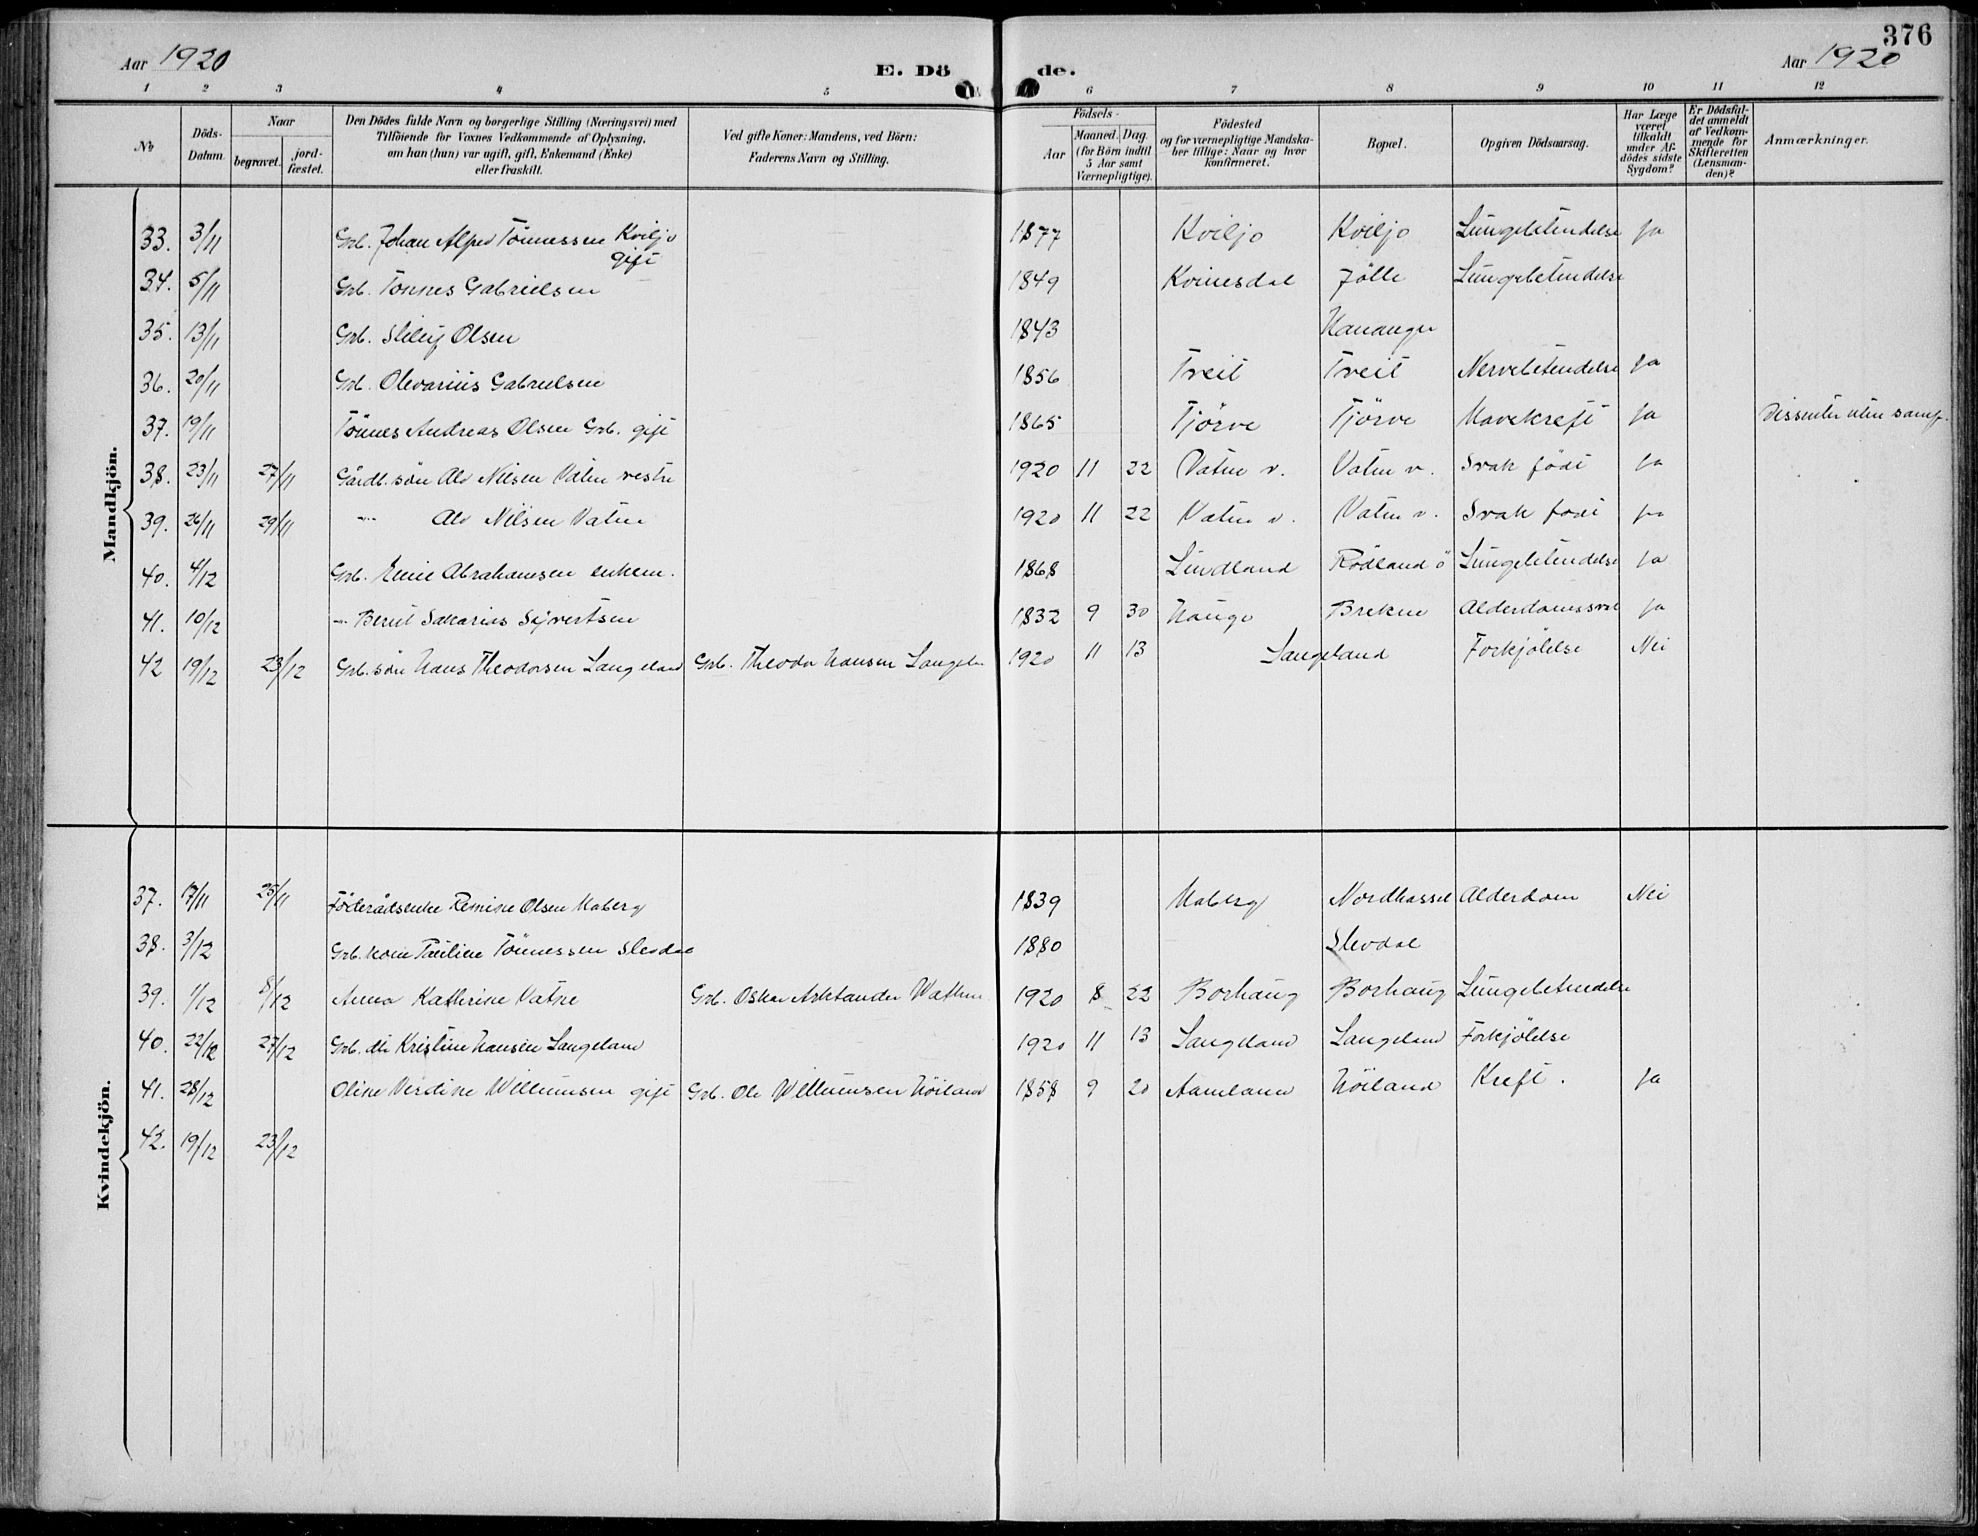 376
Aar 1920
E. Dö de.
Aar 1920
1 2 3 4 5 6 7 8 9 10 11 12
No
Döds-Datum.
Naar
begravet.
jord-fæstet.
Den Dödes fulde Navn og borgerlige Stilling (Næringsvei) med
Tilföiende for Voxnes Vedkommende af Oplysning,
om han (hun) var ugift, gift, Enkemand (Enke)
eller fraskilt.
Ved gifte Koner: Mandens, ved Börn:
Faderens Navn og Stilling.
Födsels-
Aar
Maaned. Dag.
(for Börn indtil
5 Aar samt
Værnepligtige).
Födested
og for værnepligtige Mandska-
ber tillige: Naar og hvor
konfirmeret.
Bopæl.
Opgiven Dödsaarsag.
Har Læge
været
tilkaldt
under Af-
dödes sidste
Sygdom?
Er Dödsfal-
det anmeldt
af Vedkom-
mende for
Skifteretten
(Lensman-
den)?
Anmærkninger.
Mandkjön.
33. 3/11 Grb. Johan Alfred Tönnessen Kviljo gift 1877 Kviljo Kviljo Lungebetendelse Ja
34. 5/11 Grb. Tönnes Gabrielsen 1849 Kvinesdal Jölle Lungebetendelse
35. 13/11 Grb. Olsen 1843 Hananger
36. 20/11 Grb. Olevarius Gabrielsen 1856 Treit Treit Nervebetendelse Ja
37. 19/11 Tönnes Andreas Olsen Grb. gift 1865 Tjörve Tjörve Mavekreft Ja Dissenter uten samf.
38. 23/11 27/11 Gårdb. sön Alv Nilsen Vatne vestre 1920 11 22 Vatne v. Vatne v. Svak födt Ja
39. 26/11 29/11 -"- Alv Nilsen Vatne 1920 11 22 Vatne v. Vatne v. Svak födt Ja
40. 4/12 Grb. Abrahamsen enkem. 1868 Lindland Rödland ö Lungebetendelse Ja
41. 10/12 -"- Berul Sakarias Syvertsen 1832 9 30 Hauge Brekne Alderdomssvak Ja
42 19/12 23/12 Grb. sön Hans Theodorsen Langeland Grb. Theodor Hansen Langeln 1920 11 13 Langeland Forkjölelse Nei
Kvindekjön.
37. 17/11 25/11 Föderådsenke Remine Olsen Maberg 1839 Maberg Nordhassel Alderdom Nei
38. 3/12 Grb. kone Pauline Tönnessen Slevdal 1880 Slevdal
39. 1/12 8/12 Anna Kathrine Vatne Grb. Oskar Arktander Wathne 1920 8 22 Borhaug Borhaug Lungebetendelse
40. 22/12 27/12 Grb. dtr Kristine Hansen Langeland 1920 11 13 Langeland Langeland Forkjölelse
41. 28/12 Oline Verdine Willumsen gift Grb. Ole Willumsen Höiland 1858 9 20 Aamland Höiland Kreft. Ja
42. 19/12 23/12